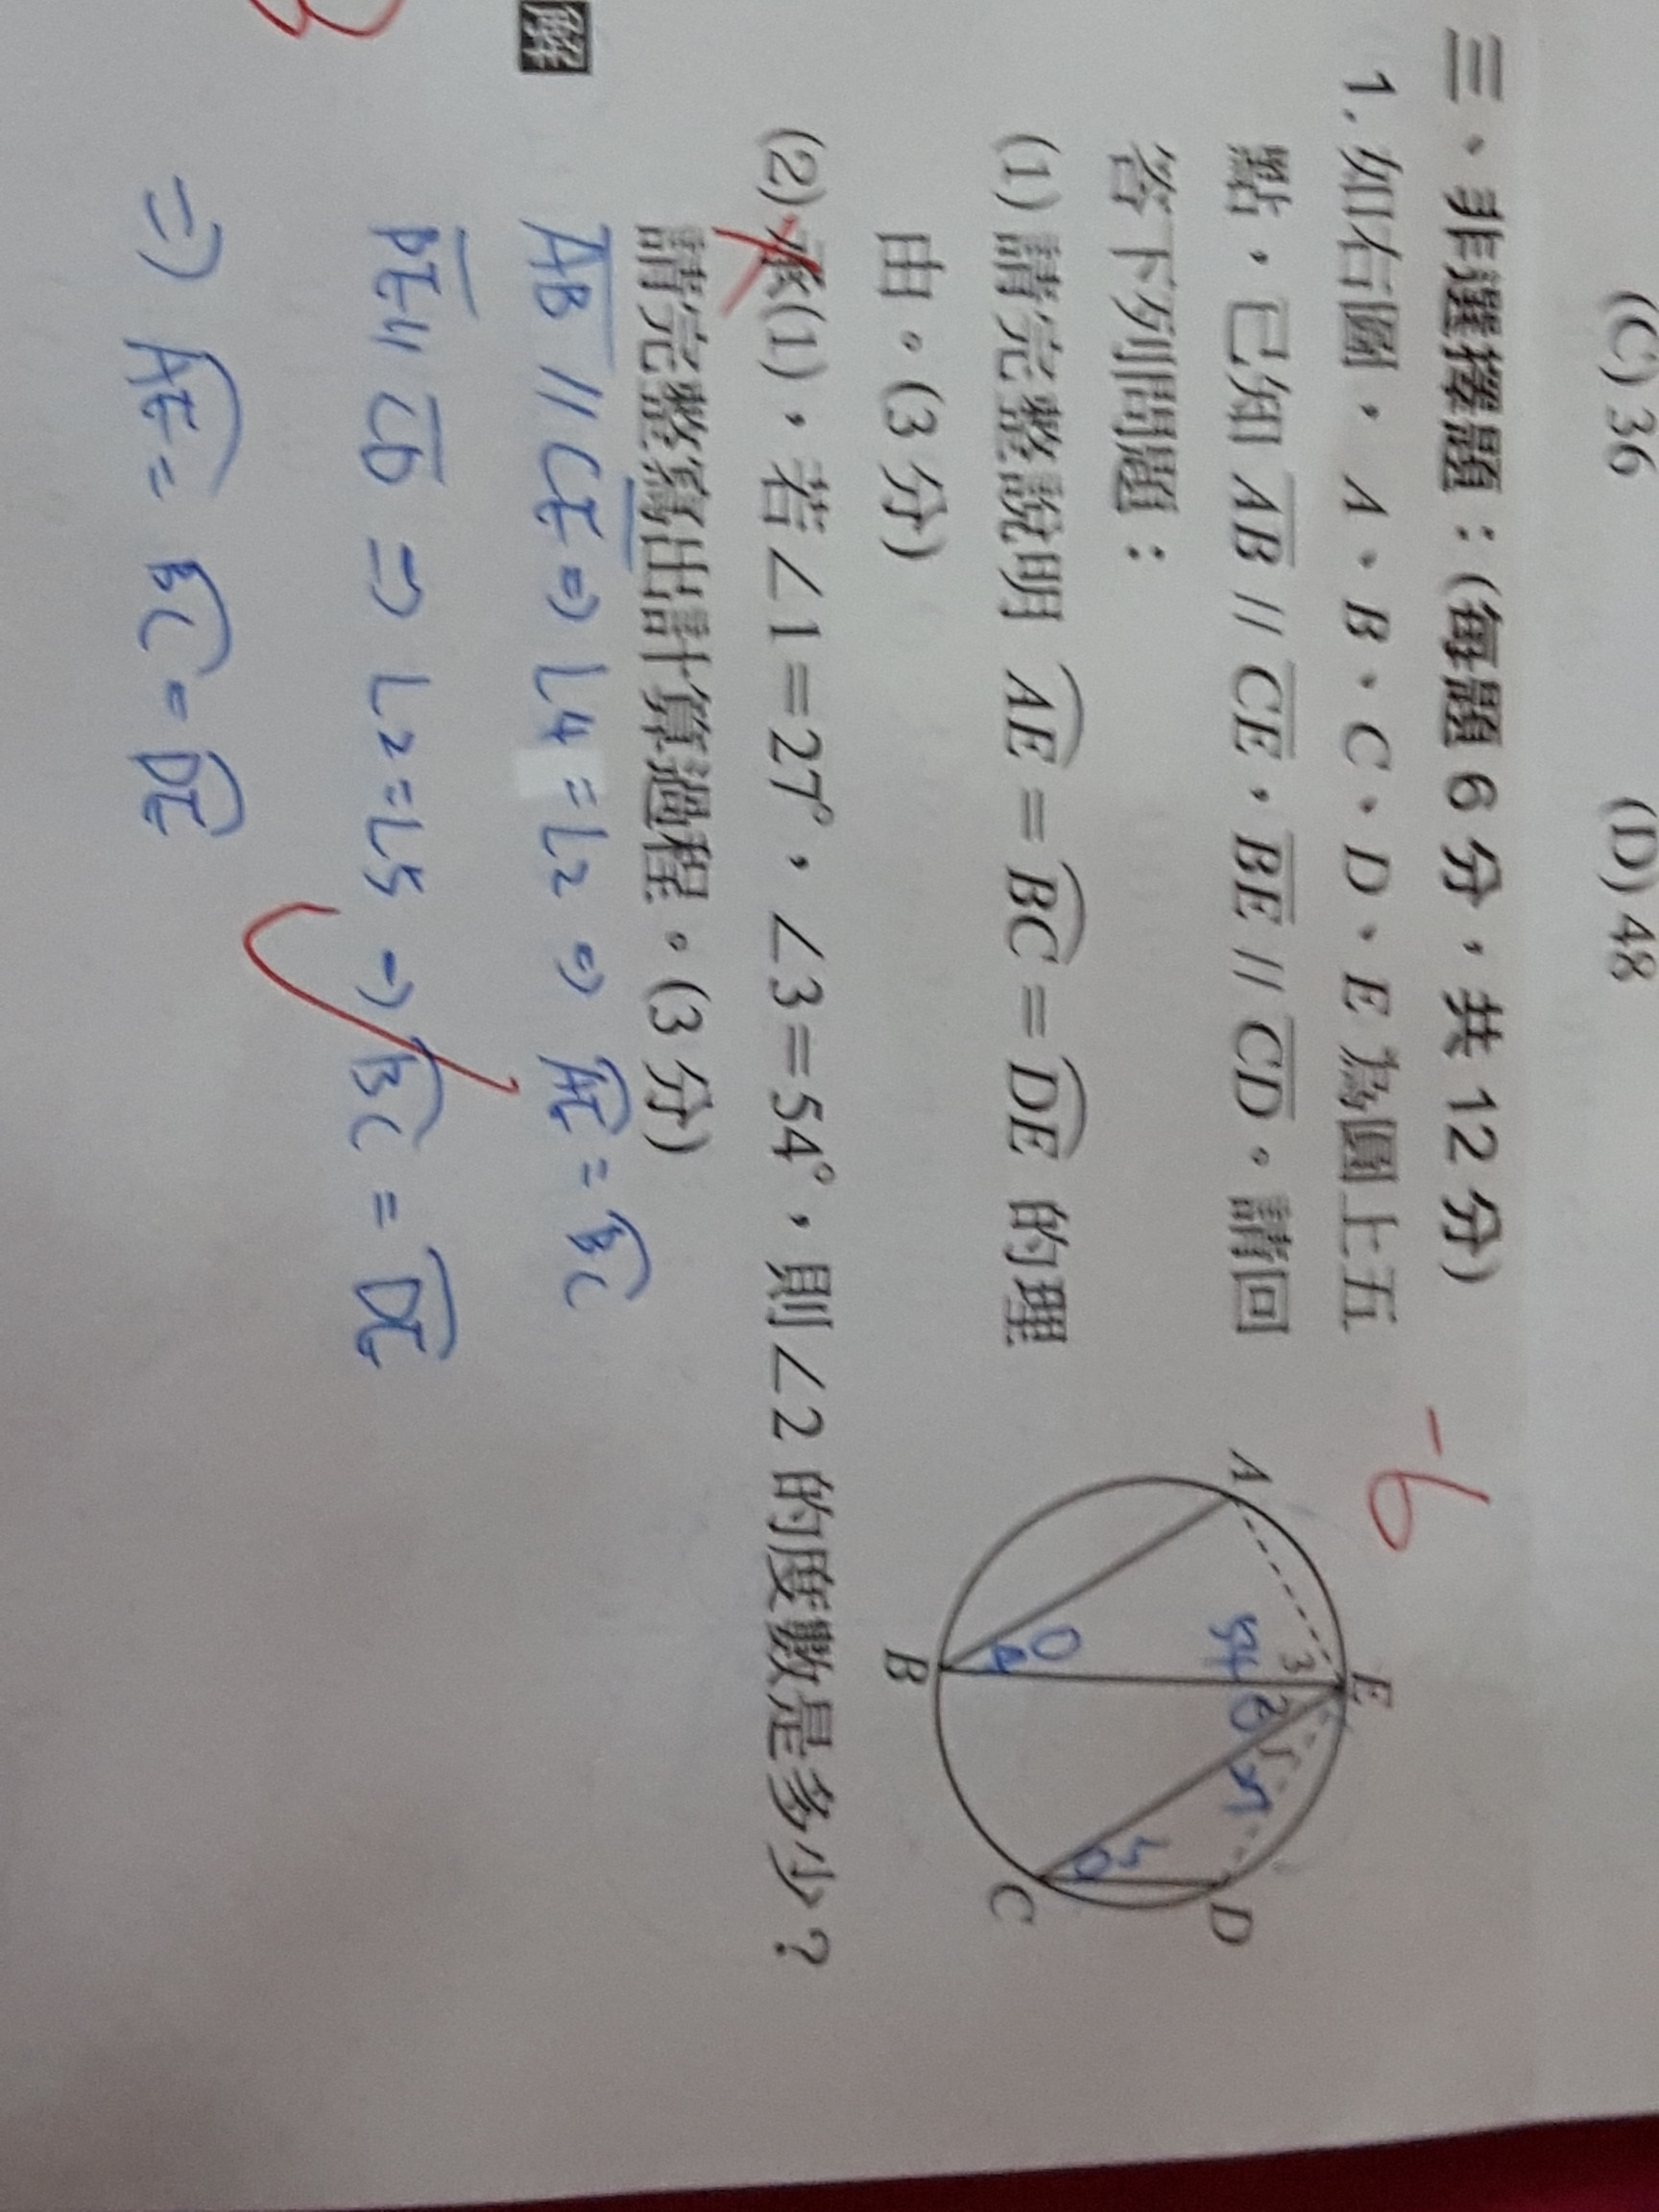 (C) 36 (D) 48
三、非選擇題：(每題 6 分，共 12 分)
-6
1. 如右圖，A、B、C、D、E 為圓上五
點，已知 AB // CE，BE // CD。請回
答下列問題：
(1) 請完整說明 AE = BC = DE 的理
由。(3 分)
(2) 承(1)，若∠1＝27°，∠3＝54°，則∠2 的度數是多少？
請完整寫出計算過程。(3 分)
A
B
C
D
E
3
2
1
54
4
5
解
AB // CE => ∠4 = ∠2 => AE = BC
BE // CD => ∠2 = ∠5 => BC = DE
=> AE = BC = DE